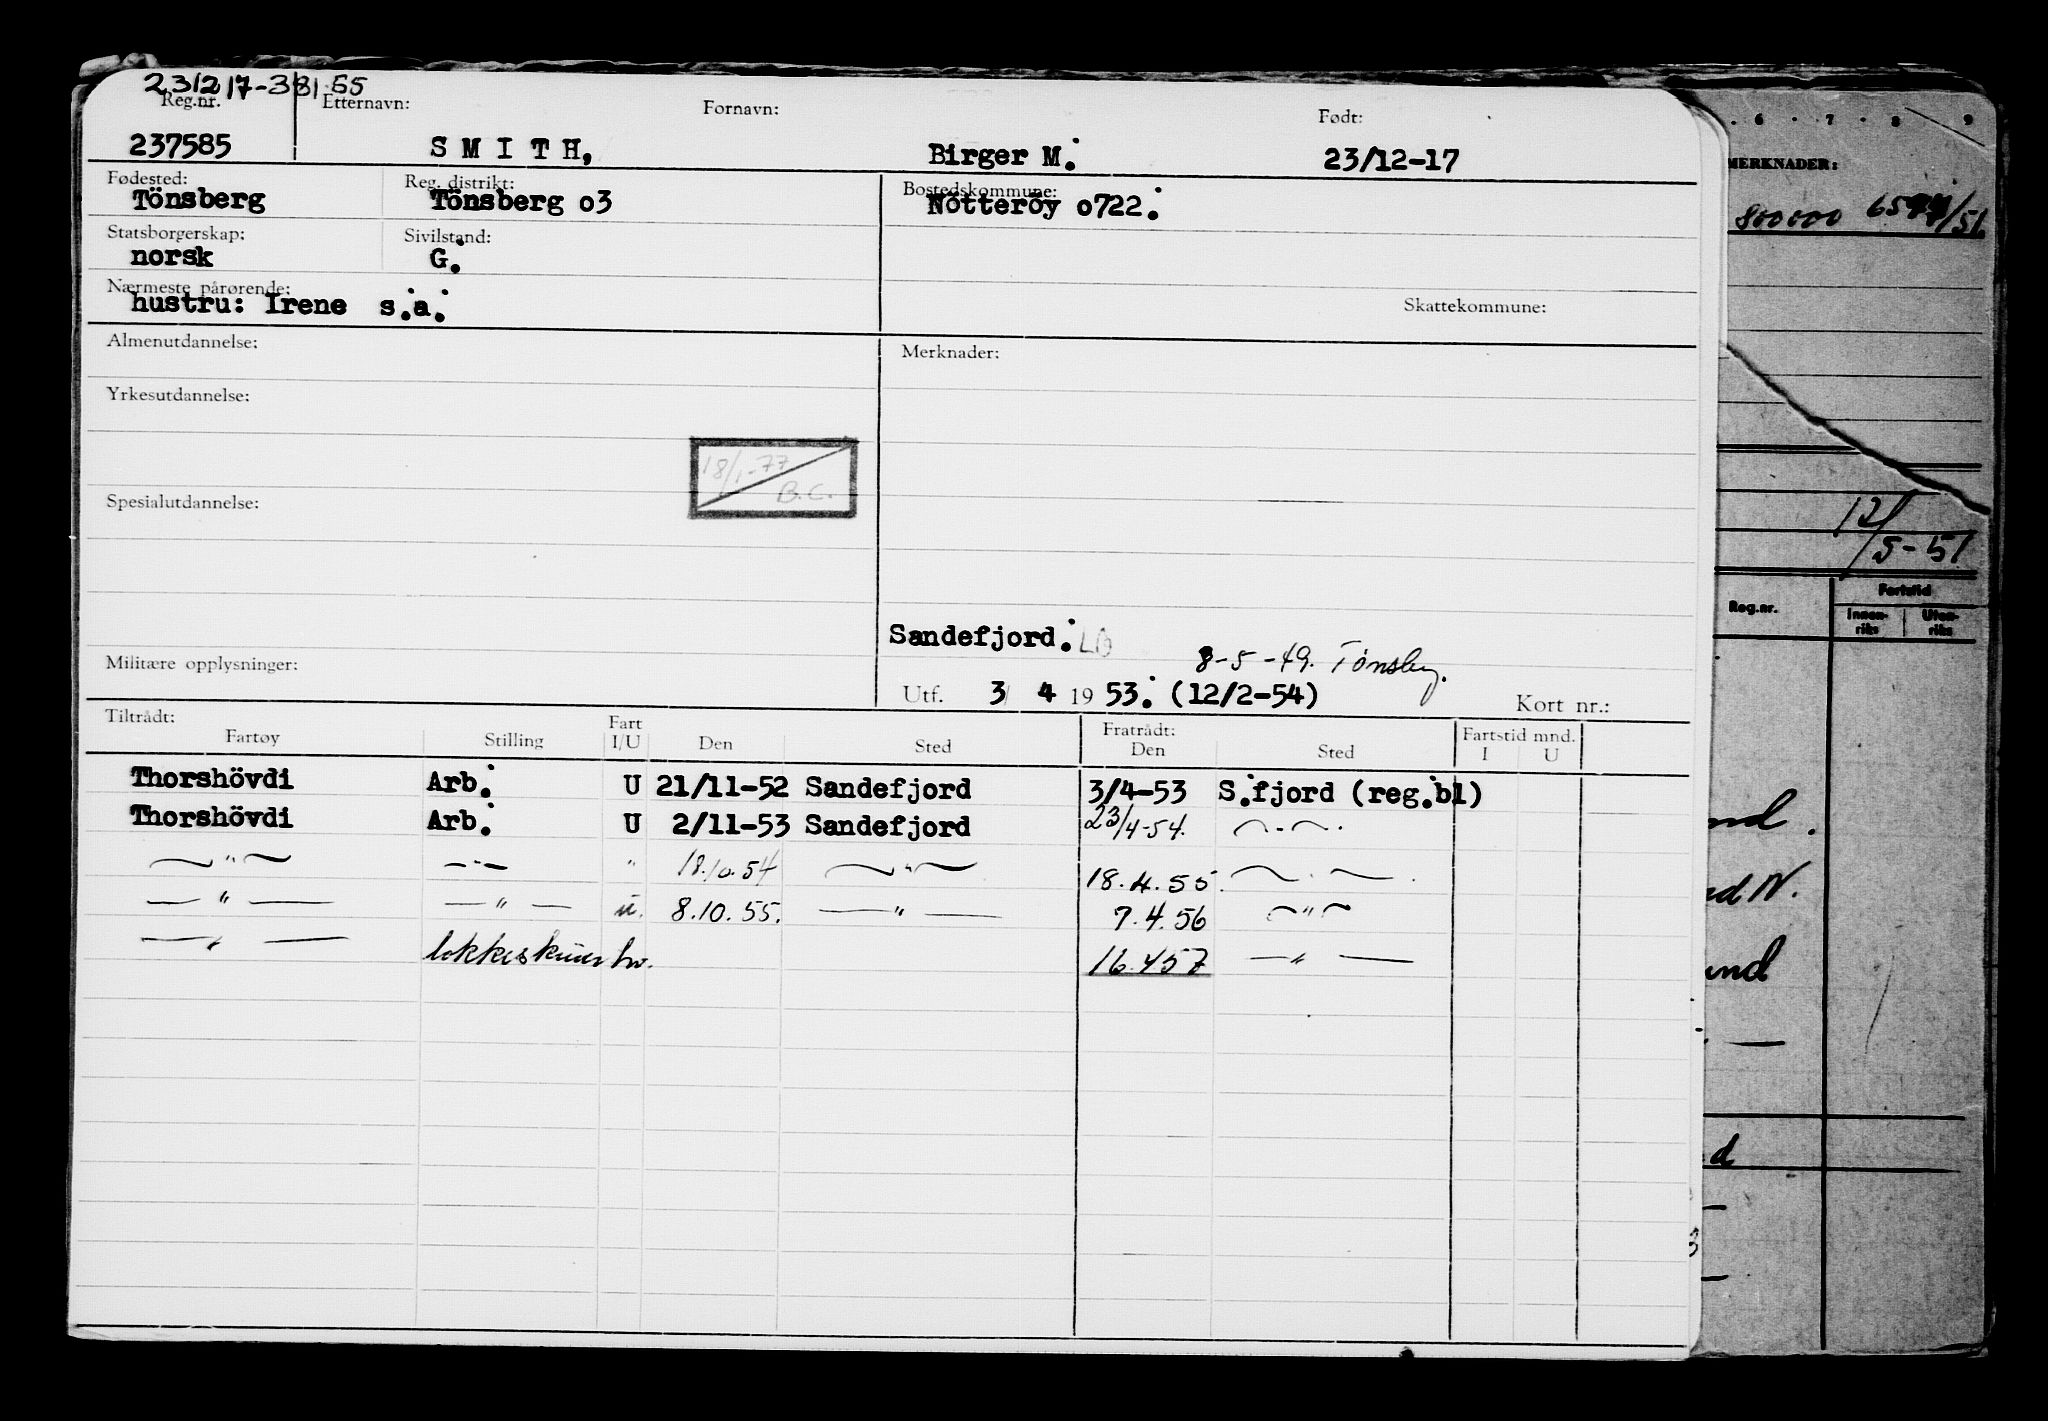 231217-381 55
Reg.nr. Etternavn: Fornavn: Født:
237585 S M I T H, Birger M. 23/12-17
Fødested: Reg. distrikt: Bostedskommune:
Tönsberg Tönsberg o3 Nötteröy o722.
Statsborgerskap: Sivilstand:
norsk G.
Nærmeste pårørende: Skattekommune:
hustru: Irene s.a.
Almenutdannelse: Merknader:
Yrkesutdannelse:
18/1-77
B.C.
Spesialutdannelse:
Sandefjord. LD
8-5-49. Tønsberg.
Militære opplysninger:
Utf. 3 4 19 53. (12/2-54) Kort nr.:
Tiltrådt: Fart Fratrådt: Fartstid mnd.
Fartøy Stilling I/U Den Sted Den Sted I U
Thorshövdi Arb. U 21/11-52 Sandefjord 3/4-53 S.fjord (reg.bl)
Thorshövdi Arb. U 2/11-53 Sandefjord 23/4-54. — " —
— " — — " — " 18.10.54 — " — 18.4.55. — " —
— " — — " — u. 8.10.55. — " — 7.4.56 — " —
— " — 16.457 — " —
6 . 7 . 8 9
MERKNADER:
800000 /51
12/5-51
Reg.nr. Fartstid
Innen-riks Uten-riks
nd.
nd N.
und
d
3